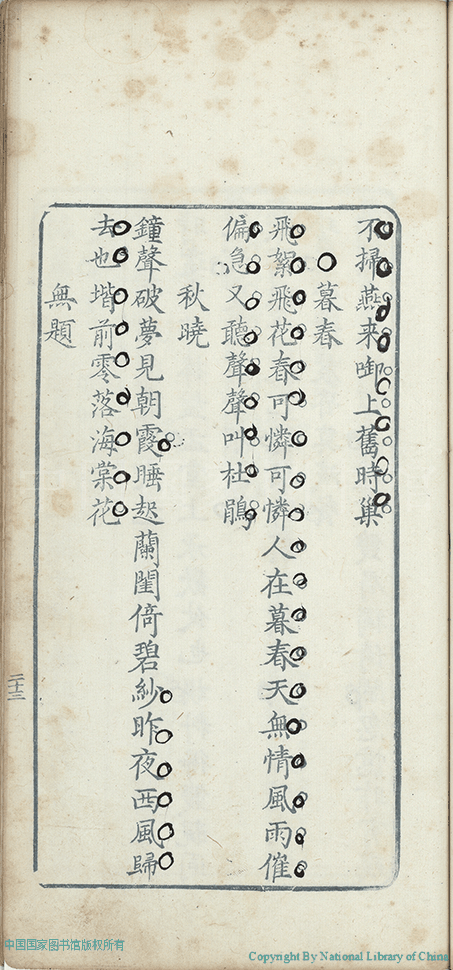 不掃燕来啣上舊時巢
暮春
飛絮飛花春可憐可憐人在暮春天無情風雨催
偏急又聽聲聲叫杜鵑
秋曉
鐘聲破夢見朝霞睡起蘭閨倚碧紗昨夜西風歸
去也堦前零落海棠花
無題
二十三
中国国家图书馆版权所有
Copyright By National Library of China